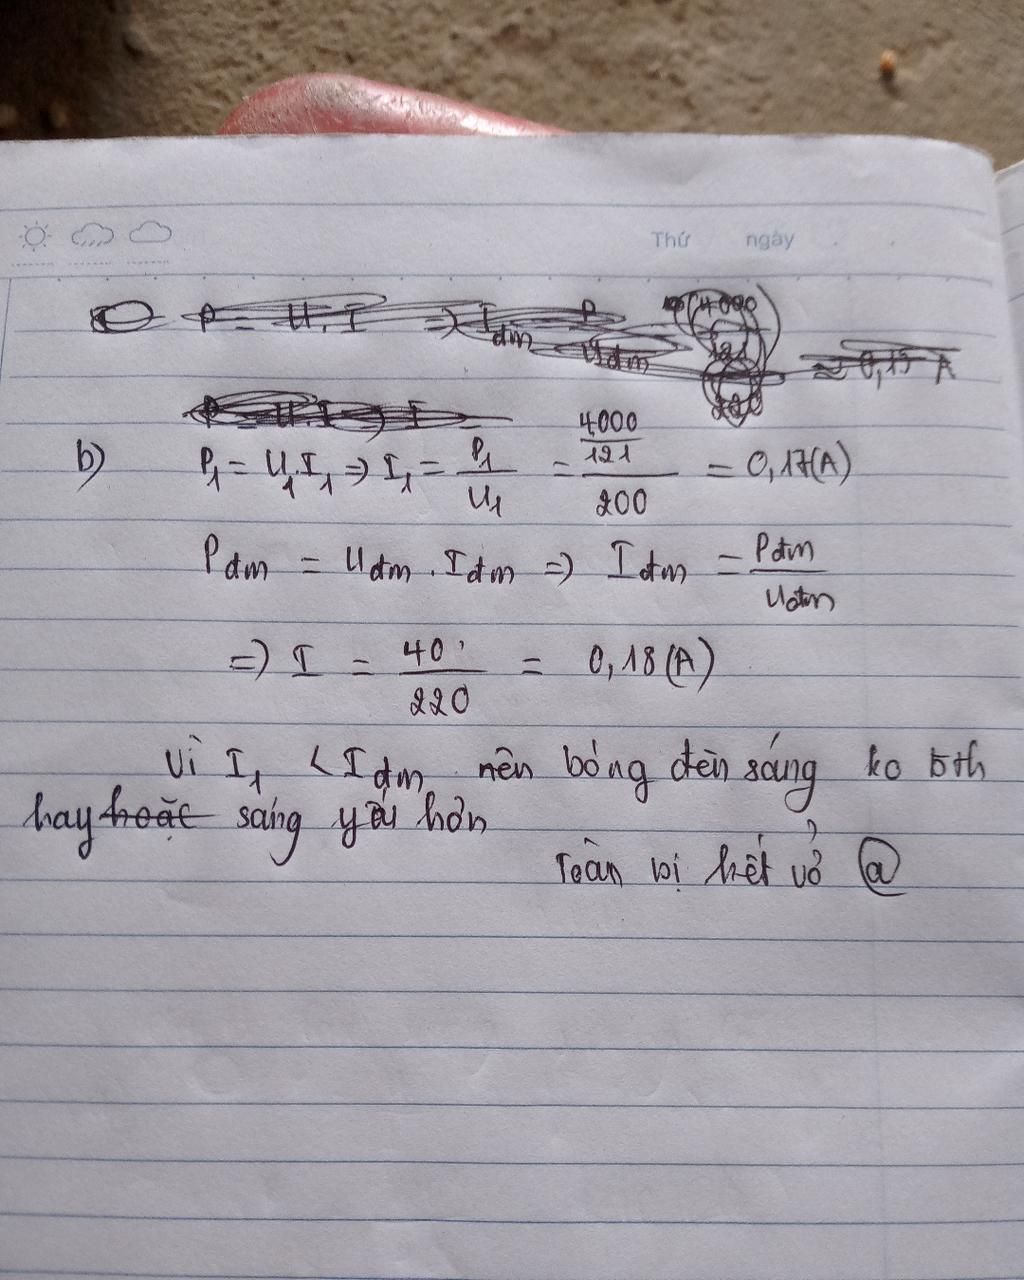 Thứ ngày
P = U.I => I đm P Uđm 4000 121 220 ≈ 0,15 A
P = U.I => I
b) P₁ = U₁.I₁ => I₁ = P₁/U₁ = (4000/121)/200 = 0,17(A)
Pđm = Uđm . Iđm => Iđm = Pđm/Uđm
=> I = 40/220 = 0,18(A)
Vì I₁ < Iđm nên bóng đèn sáng ko bth
hay hoặc sáng yếu hơn
Toàn bị hết vở @